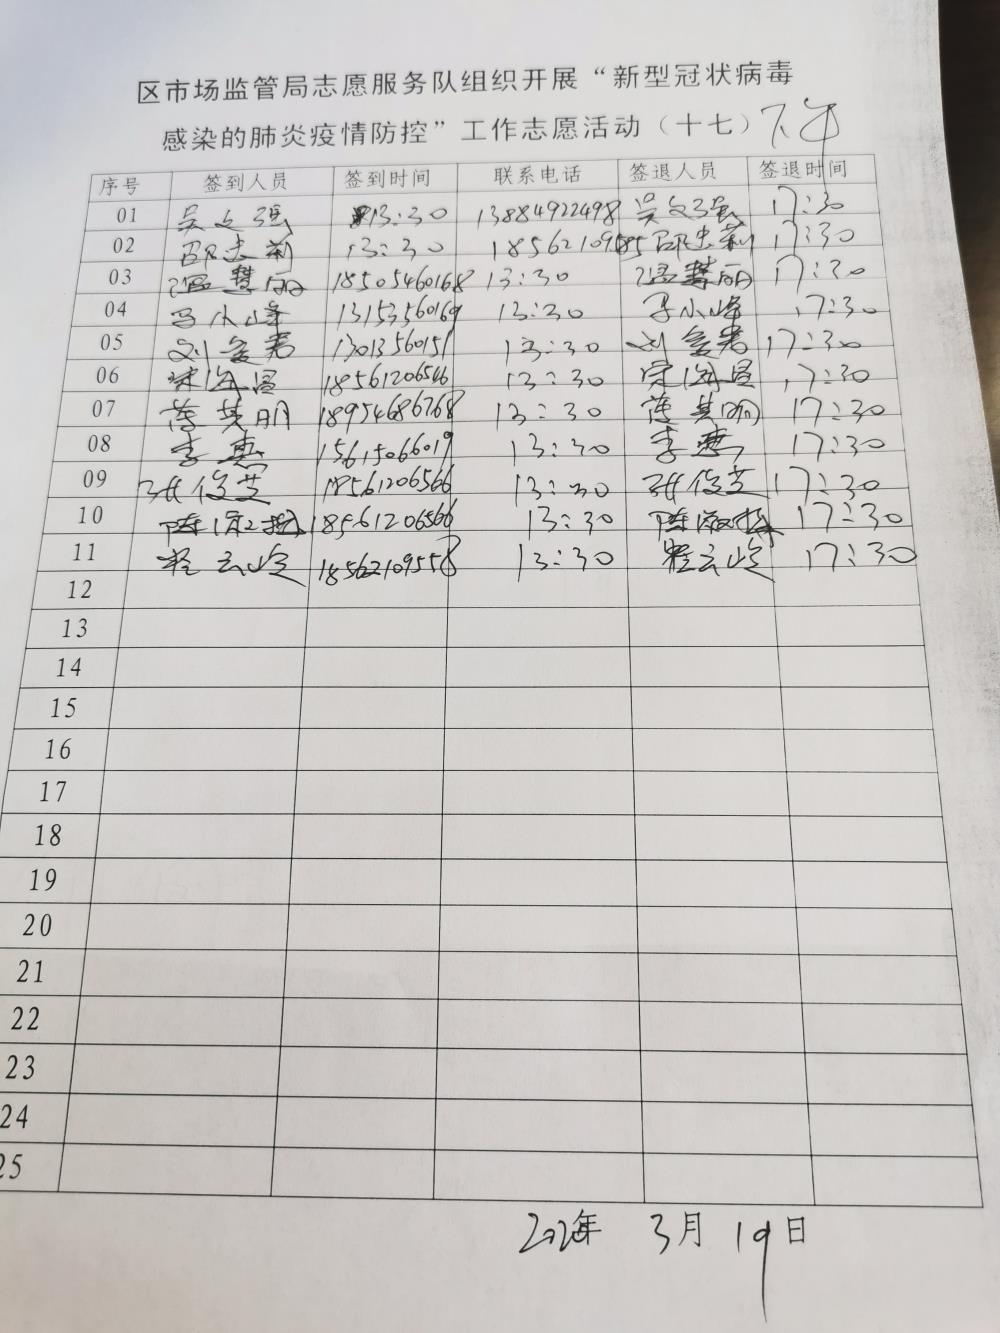 区市场监管局志愿服务队组织开展“新型冠状病毒
感染的肺炎疫情防控”工作志愿活动（十七）下午
序号 签到人员 签到时间 联系电话 签退人员 签退时间
01 吴文强 13:30 13884922498 吴文强 17:30
02 13:30 18562109585 17:30
03 温慧丽 18505460168 13:30 温慧丽 17:30
04 马小峰 13153560169 13:30 马小峰 17:30
05 13013560151 13:30 17:30
06 18561206546 13:30 17:30
07 18954686768 13:30 17:30
08 李燕 15615066019 13:30 李燕 17:30
09 张俊芝 18561206566 13:30 张俊芝 17:30
10 18561206566 13:30 17:30
11 程云岭 18562109558 13:30 程云岭 17:30
12
13
14
15
16
17
18
19
20
21
22
23
24
25
3月19日